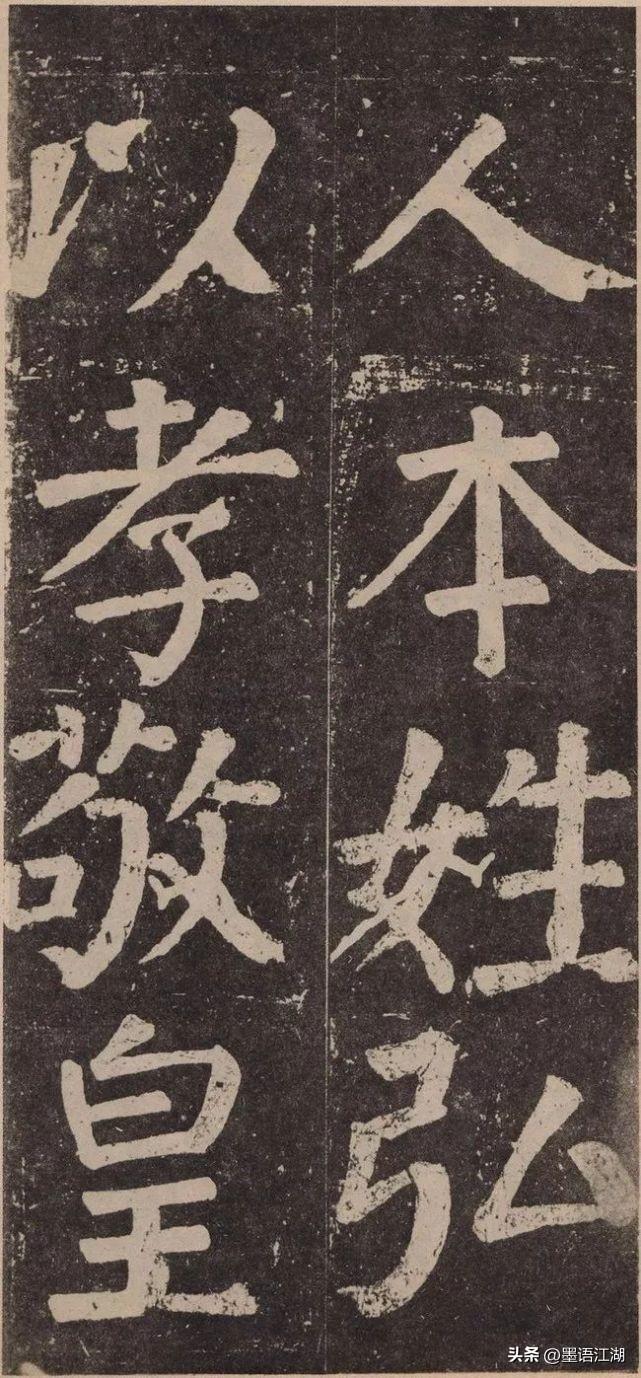 人本姓弘
以孝敬皇
头条 @墨语江湖